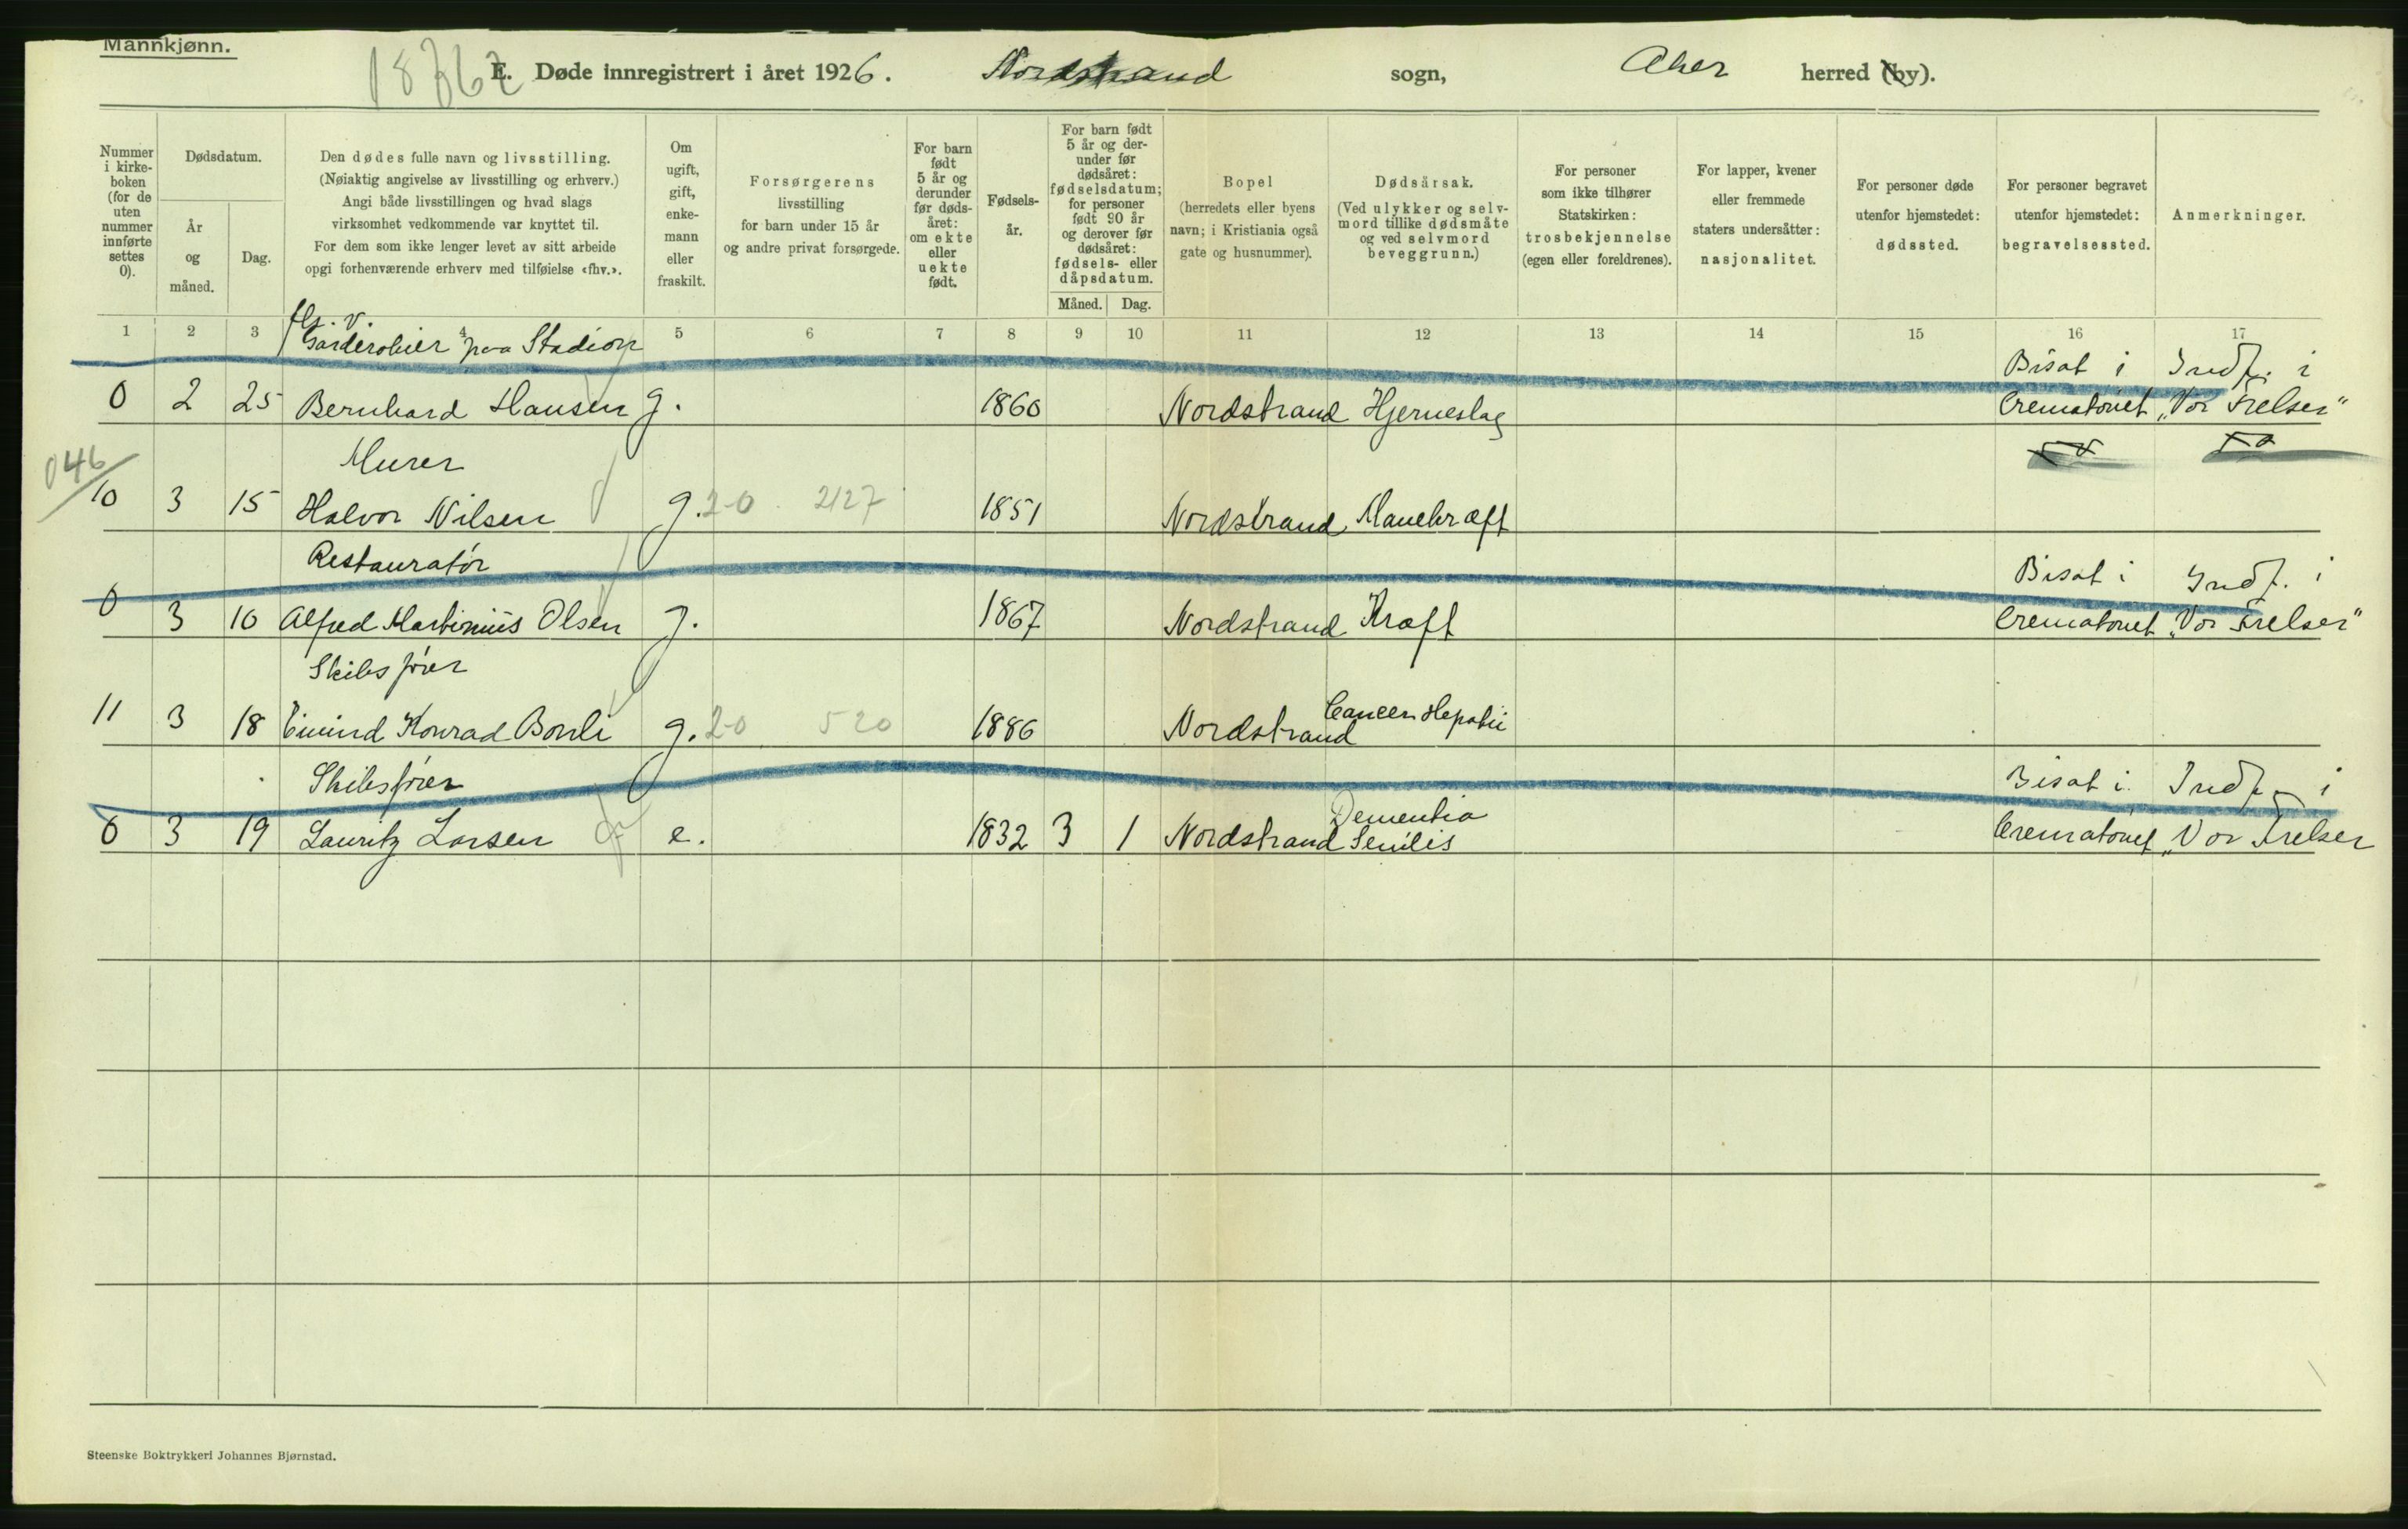 Mannkjønn.
E. Døde innregistrert i året 1926. Nordstrand sogn, Aker herred (by).
Nummer i kirke-boken (for de uten nummer innførte settes 0).
Dødsdatum.
År og måned.
Dag.
Den dødes fulle navn og livsstilling.
(Nøiaktig angivelse av livsstilling og erhverv.)
Angi både livsstillingen og hvad slags
virksomhet vedkommende var knyttet til.
For dem som ikke lenger levet av sitt arbeide
opgi forhenværende erhverv med tilføielse «fhv.».
Om ugift, gift, enke-mann eller fraskilt.
Forsørgerens
livsstilling
for barn under 15 år
og andre privat forsørgede.
For barn født 5 år og derunder før døds-året: om ekte eller uekte født.
Fødsels-år.
For barn født 5 år og der-under før dødsåret: fødselsdatum; for personer født 90 år og derover før dødsåret: fødsels- eller dåpsdatum.
Måned. Dag.
Bopel
(herredets eller byens
navn; i Kristiania også
gate og husnummer).
Dødsårsak.
(Ved ulykker og selv-
mord tillike dødsmåte
og ved selvmord
beveggrunn.)
For personer
som ikke tilhører
Statskirken:
trosbekjennelse
(egen eller foreldrenes).
For lapper, kvener
eller fremmede
staters undersåtter:
nasjonalitet.
For personer døde
utenfor hjemstedet:
dødssted.
For personer begravet
utenfor hjemstedet:
begravelsessted.
Anmerkninger.
1 2 3 4 5 6 7 8 9 10 11 12 13 14 15 16 17
Garderobier paa Stadion Bisat i Indf. i
0 2 25 Bernhard Hansen g. 1860 Nordstrand Hjerneslag Crematoriet „Vor Frelser“
046
Murer
10 3 15 Halvor Nilsen g. 20 2127 1851 Nordstrand Mavekræft
Restauratør Bisat i Indf. i
0 3 10 Alfred Martinius Olsen g. 1867 Nordstrand Kræft Crematoriet „Vor Frelser“
Skibsfører
11 3 18 Eivind Konrad g. 20 520 1886 Nordstrand Cancer Hepatii
Skibsfører Bisat i Indf. i
0 3 19 Lauritz Larsen e. 1832 3 1 Nordstrand Dementia Senilis Crematoriet „Vor Frelser
Steenske Boktrykkeri Johannes Bjørnstad.